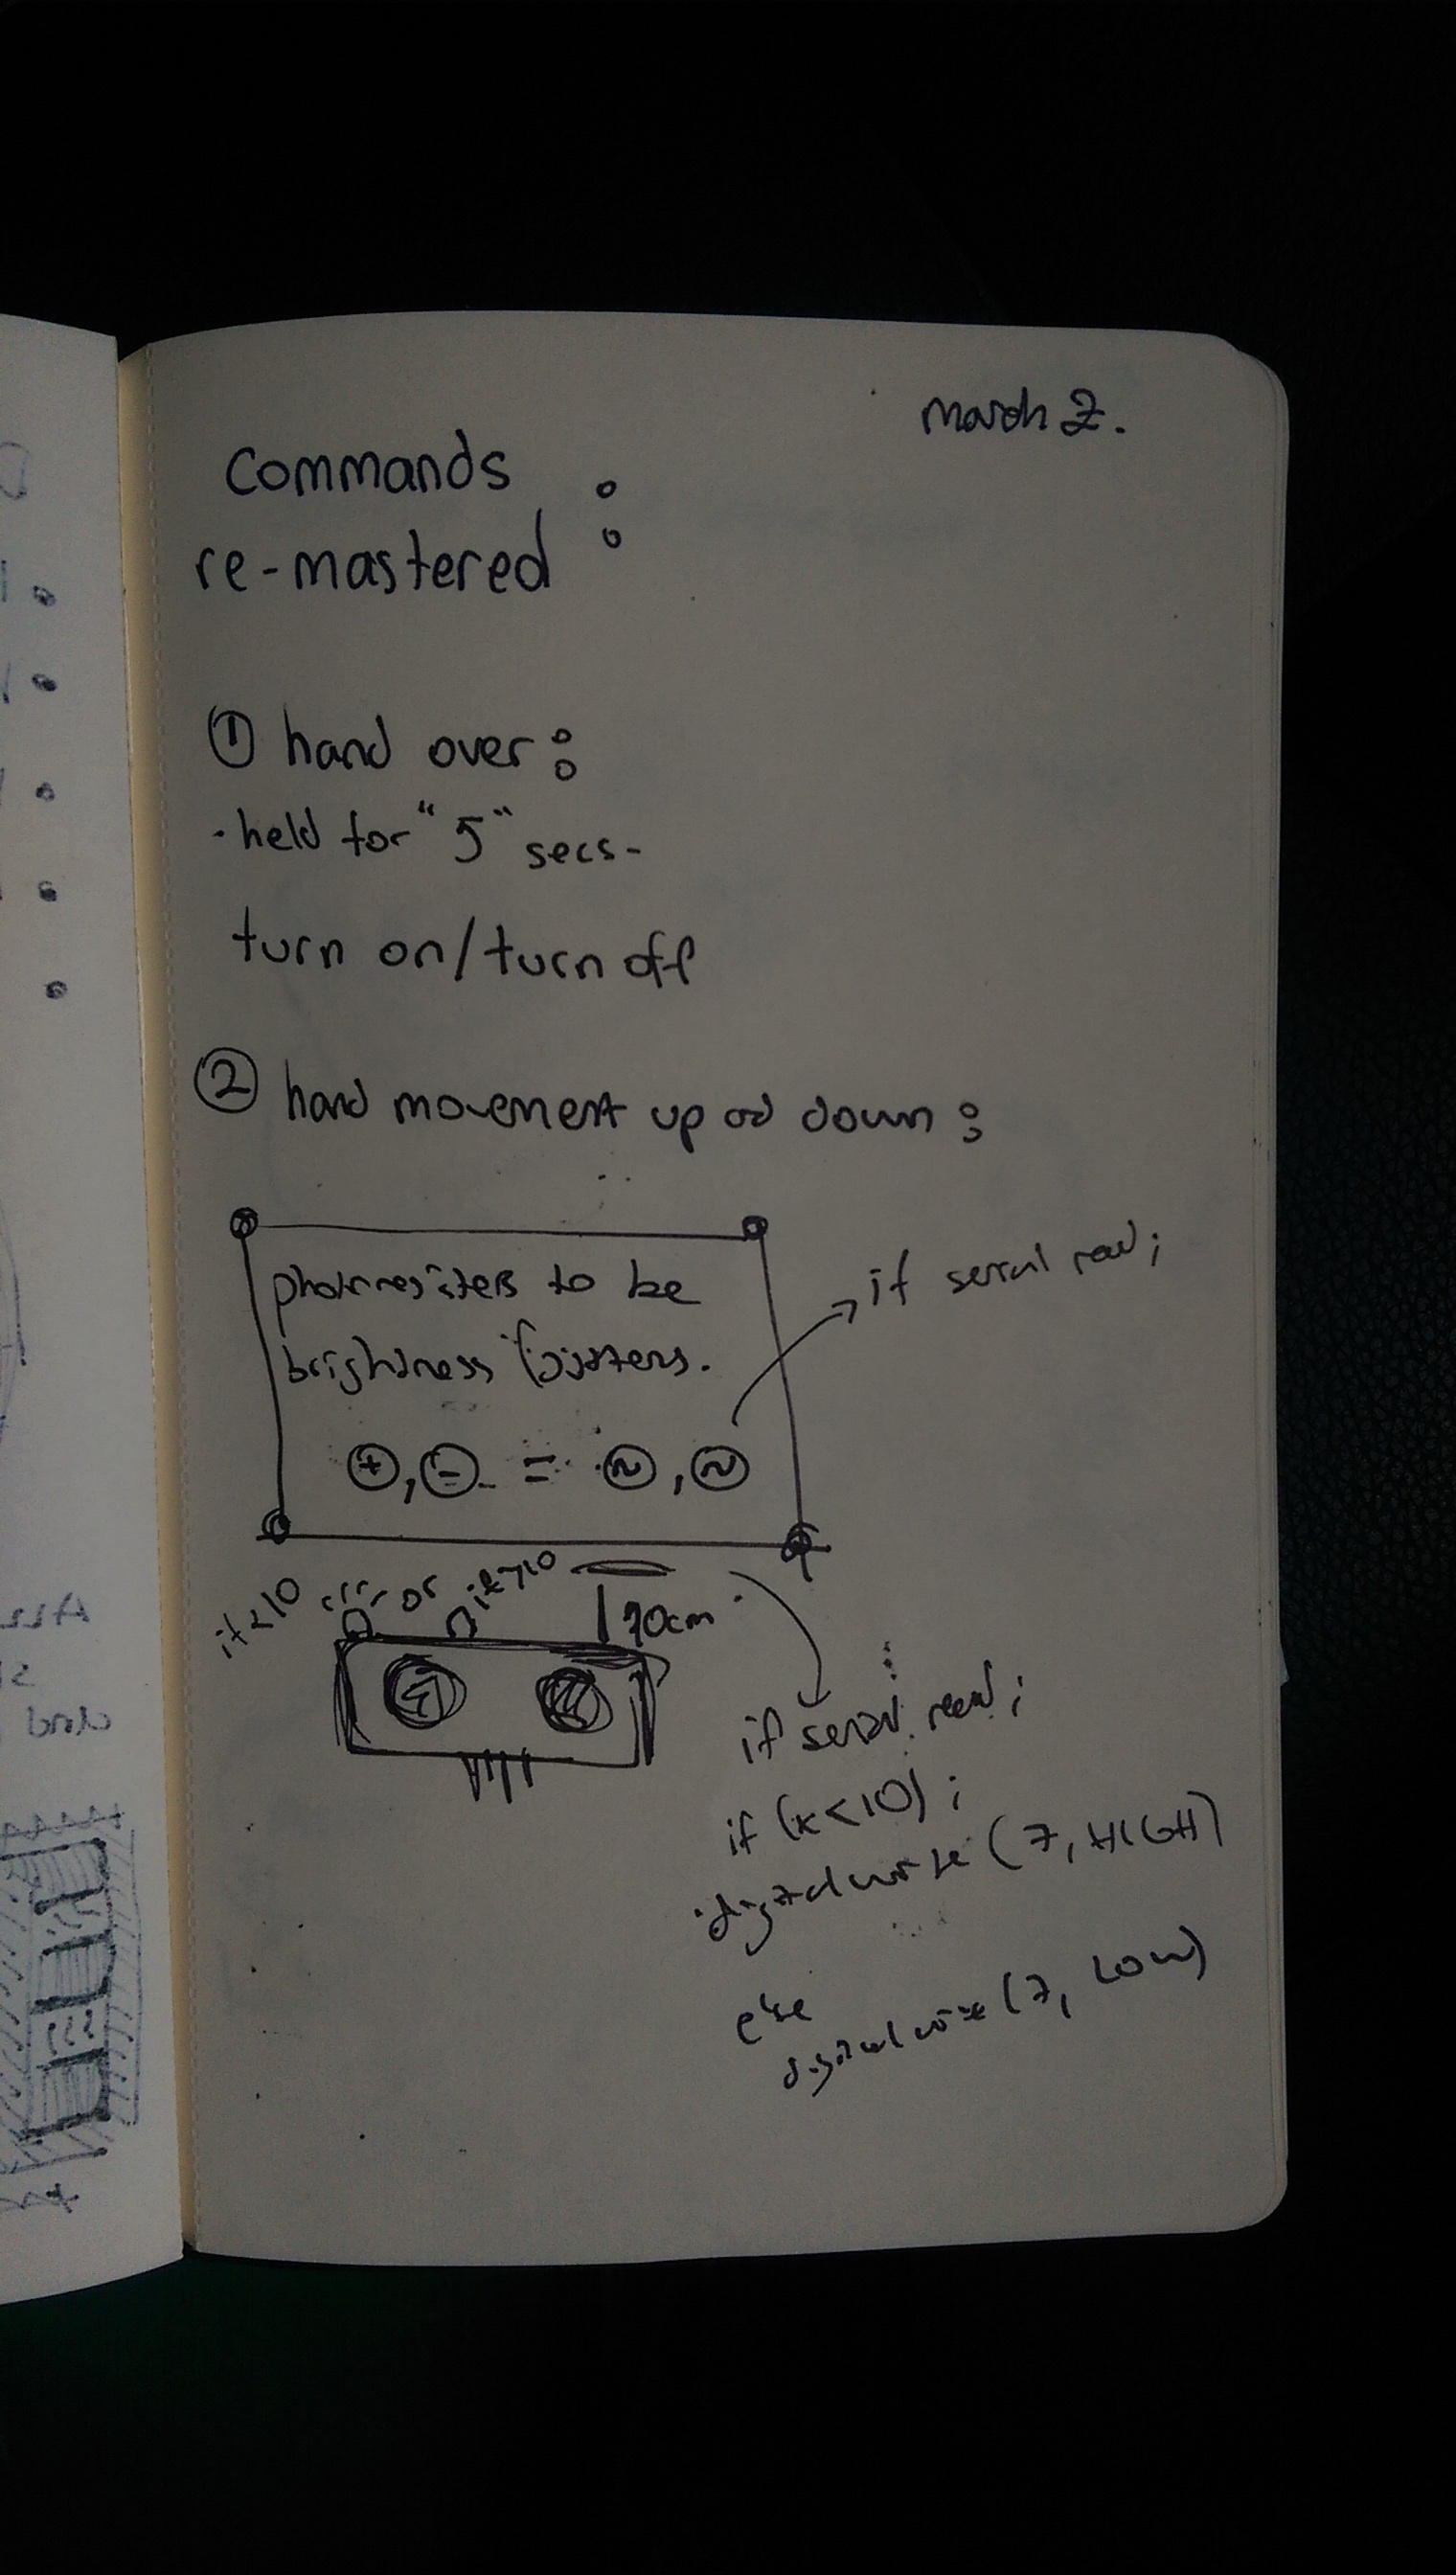 march 2.
Commands :
re-mastered
① hand over :
· held for "5" secs-
turn on/turn off
② hand movement up down :
to be
brightness
⊕, ⊖ = ~, ~
if serial read;
if <10 or if >10
10cm
if serial read;
if (x<10);
digitalwrite (7, HIGH)
else
digitalwrite (7, LOW)